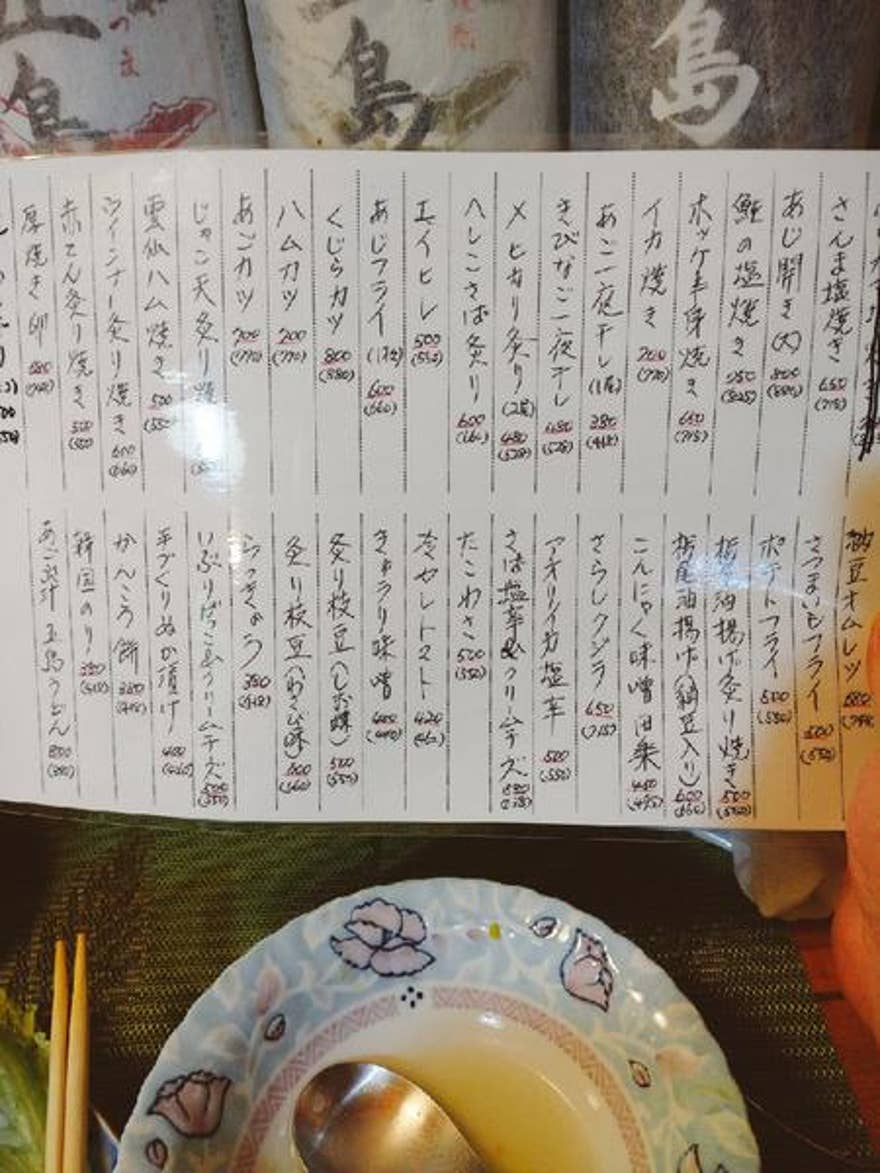 島
島
さんま塩焼き 650 (715)
あじ開き(大) 800 (880)
鮭の塩焼き 750 (825)
ホッケ半身焼き 650 (715)
イカ焼き 700 (770)
あご一夜干し(1尾) 380 (418)
きびなご一夜干し 480 (528)
メヒカリ炙り(2尾) 480 (528)
へしこさば炙り 600 (660)
エイヒレ 500 (550)
あじフライ 600 (660)
くじらカツ 800 (880)
ハムカツ 700 (770)
あごカツ 700 (770)
じゃこ天炙り焼
雲仙ハム焼き 500 (550)
ウインナー炙り焼き 600 (660)
赤てん炙り焼き 500 (550)
厚焼き卵
納豆オムレツ
さつまいもフライ 500 (550)
ポテトフライ 500 (550)
栃尾油揚げ炙り焼き 500 (550)
栃尾油揚げ(納豆入り) 600 (660)
こんにゃく味噌田楽 450 (495)
さらしクジラ 650 (715)
アオリイカ塩辛 500 (550)
さば塩辛&クリームチーズ
たこわさ 500 (550)
冷やしトマト 420 (462)
きゃらり味噌 400 (440)
炙り枝豆(しお味) 500 (550)
炙り枝豆(わさび味) 600 (660)
らっきょう 380 (418)
いぶりがっこ&クリームチーズ 500 (550)
手づくりぬか漬け 400 (440)
かんころ餅 380 (418)
韓国のり 380 (418)
あご出汁 五島うどん 800 (880)